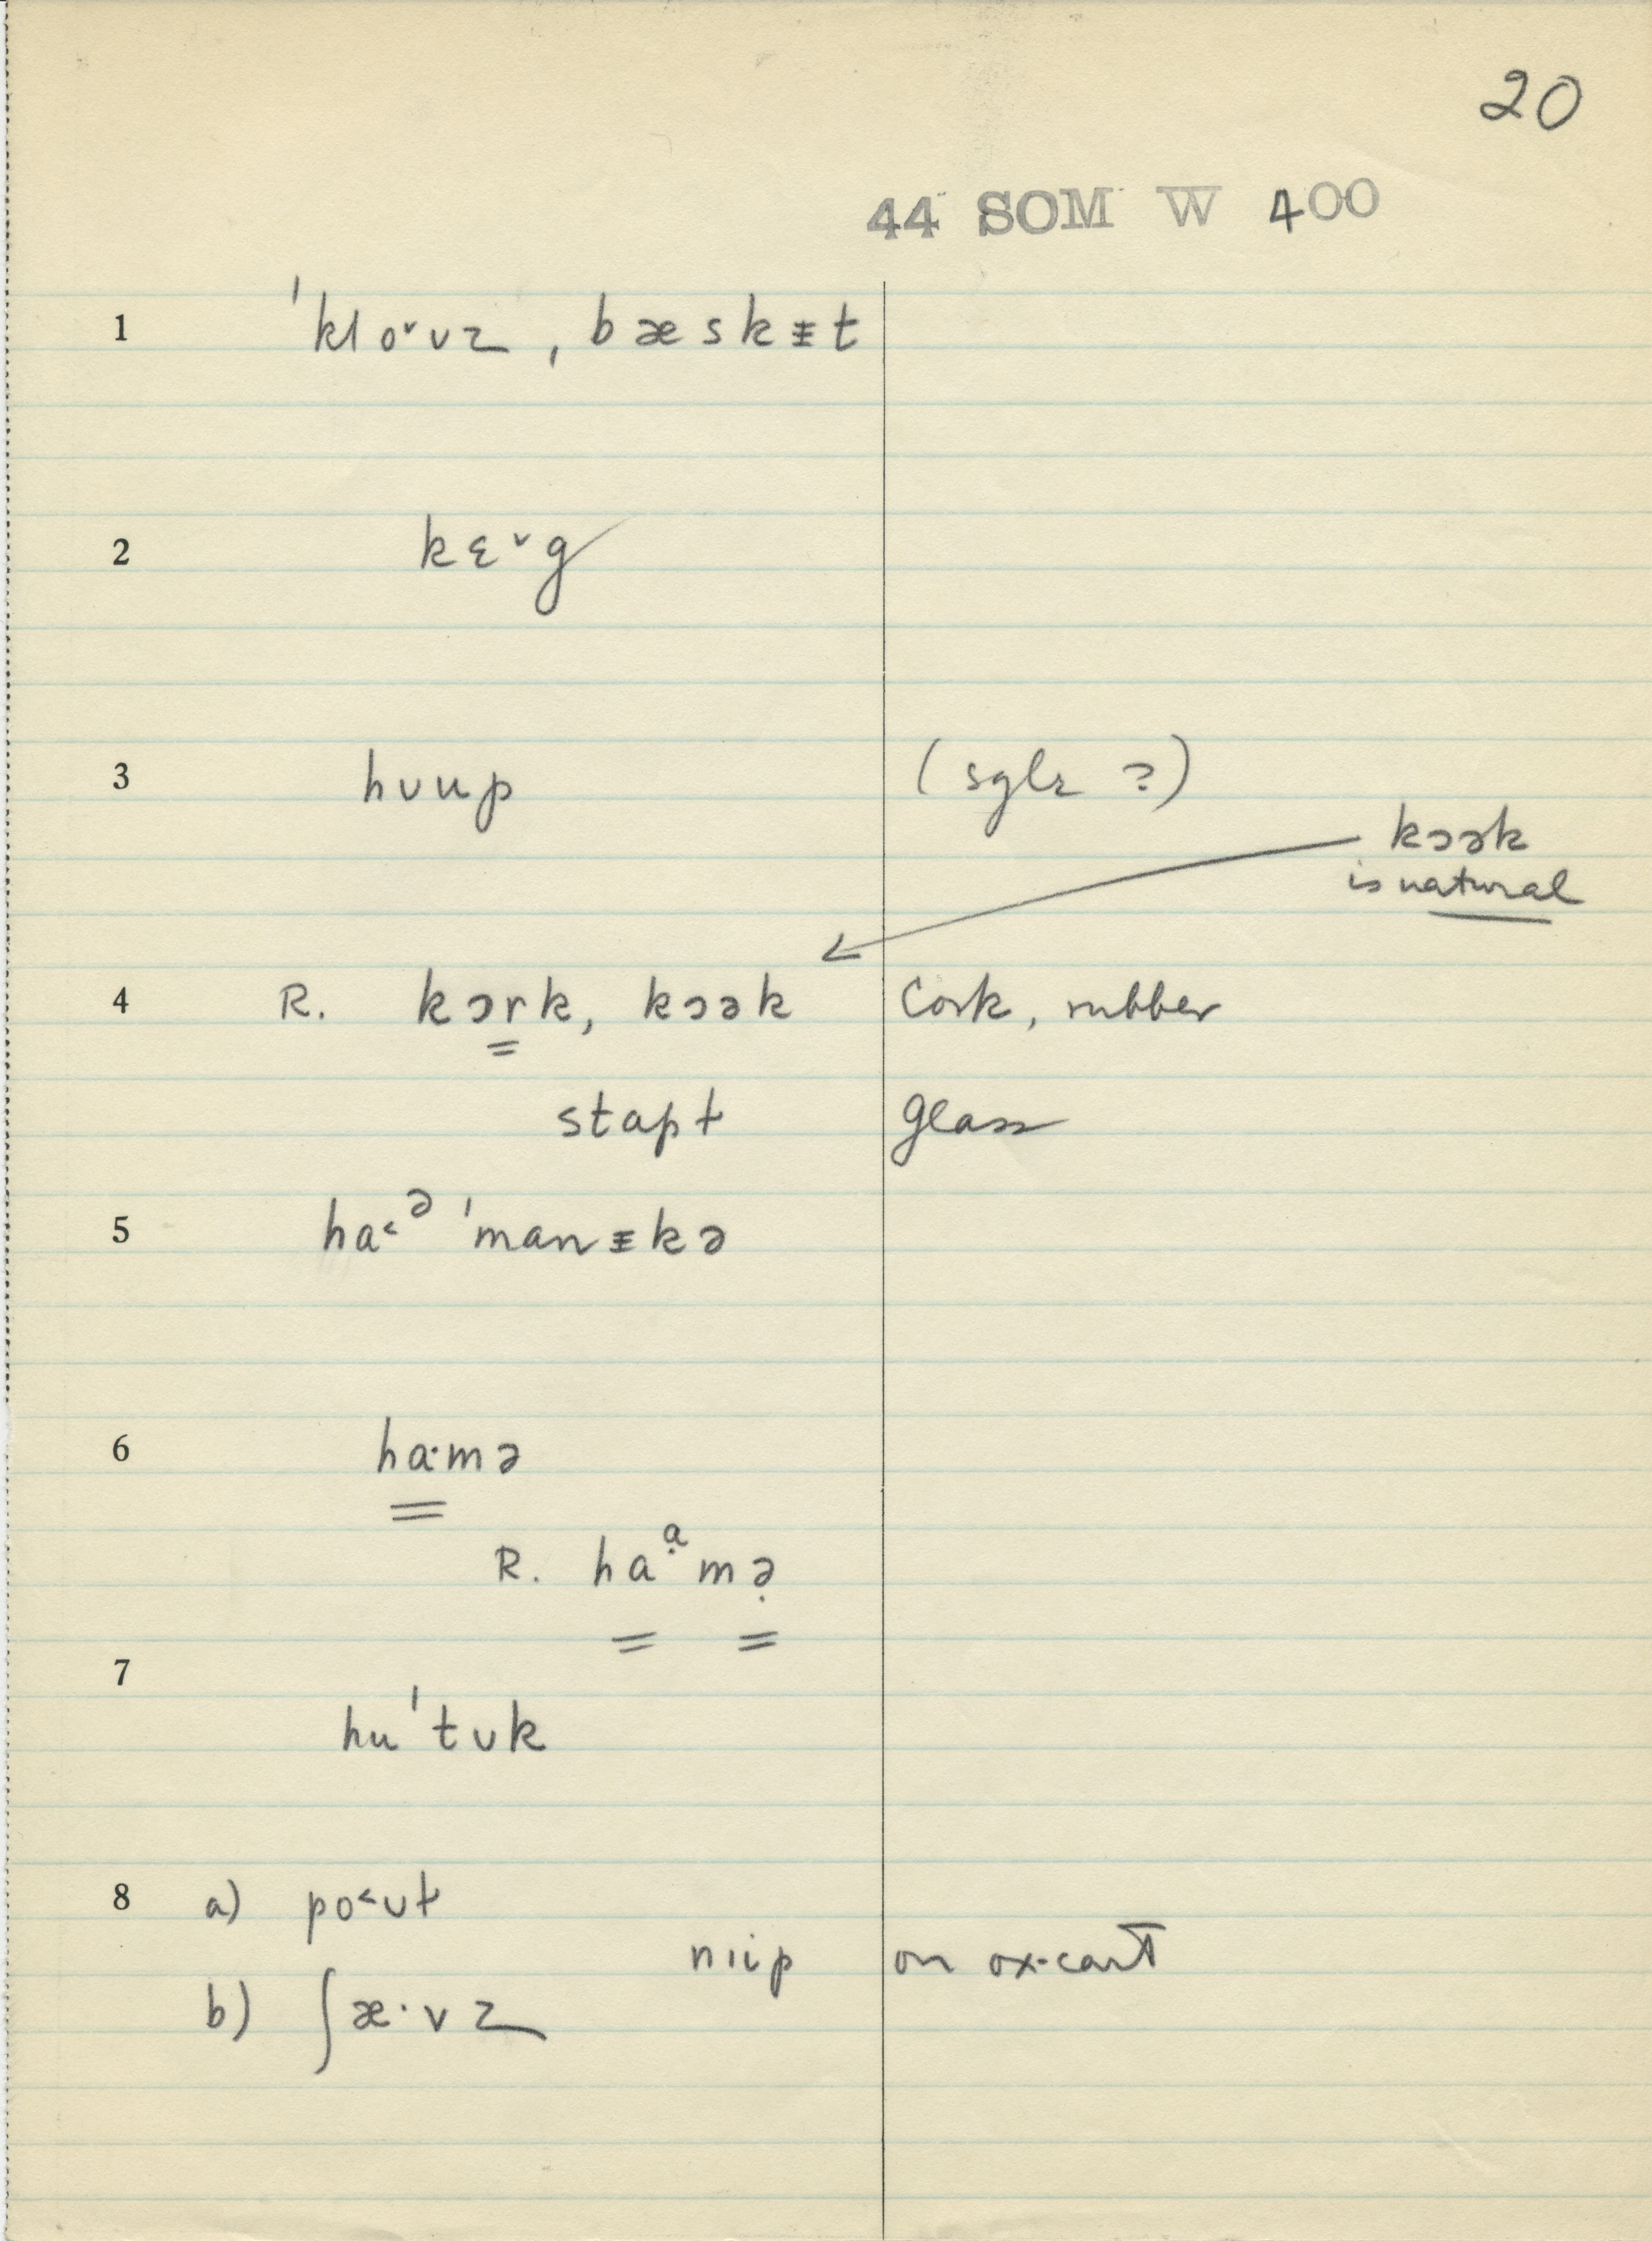 20
44 SOM W 400
1 ˈkloˇʊz, bæskᵻt
2 kɛˇg
3 hʊup (sglr ?)
kɔək
is natural
4 R. kɔrk, kɔək cork, rubber
stapt glass
5 ha˂ᵊ ˈmanᵻkə
6 ha·mə
R. haᵃ̣mə̣
7 huˈtʊk
8 a) po˂ʊt
nɪip on ox-cart
b) ʃæ·vz